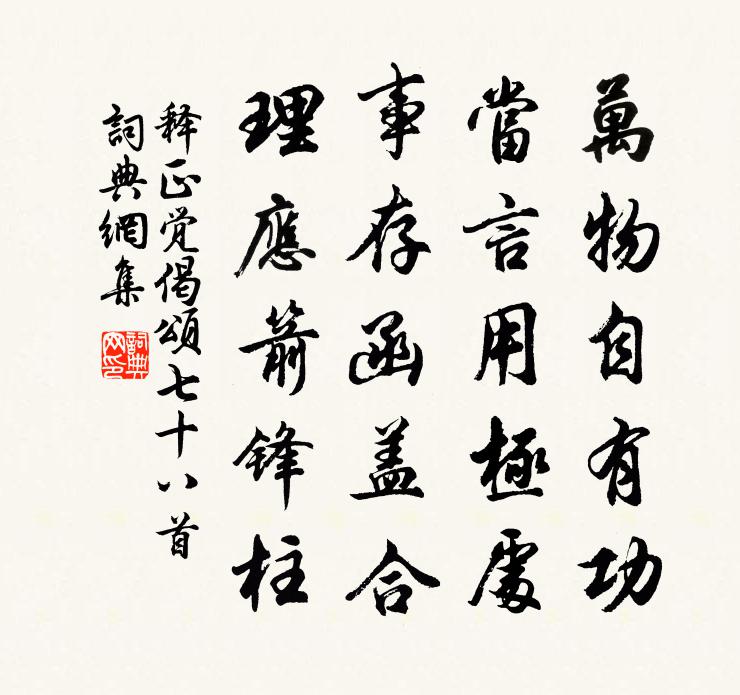 萬物自有功
當言用極處
事存函盖合
理應箭鋒柱
释正觉偈頌七十八首
詞典網集
詞典網印